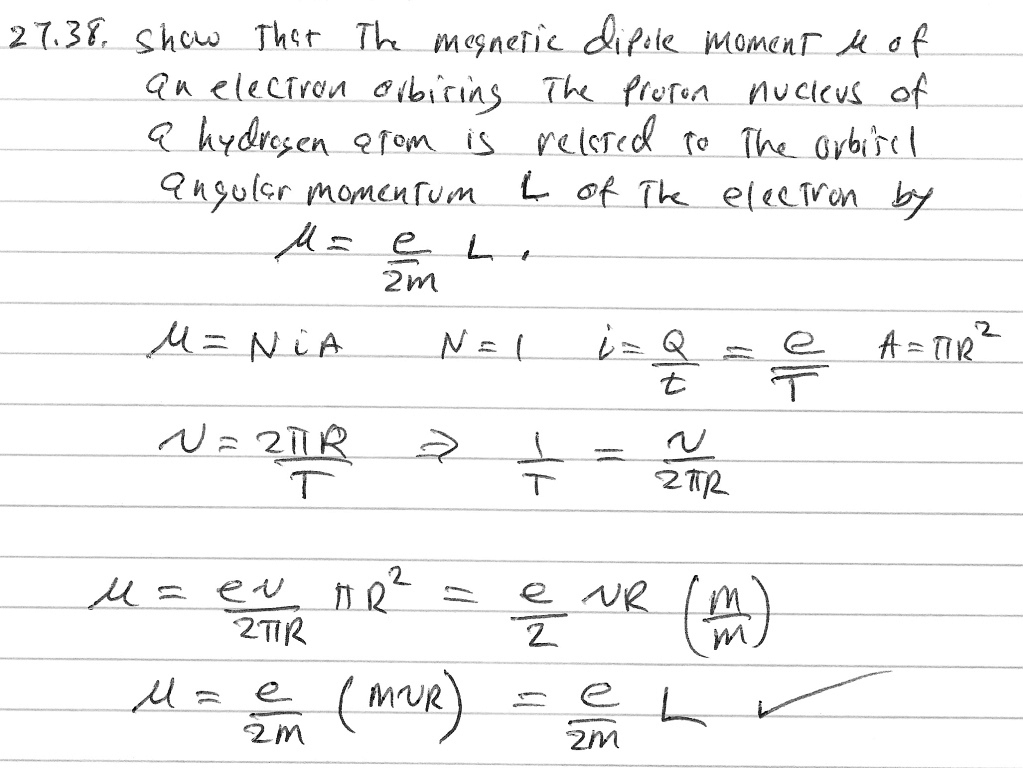 27.38. Show That The magnetic dipole moment μ of
an electron orbiting The proton nucleus of
a hydrogen atom is related to The orbital
angular momentum L of The electron by
μ = e/2m L.
μ = NiA N = 1 i = Q/t = e/T A = πR²
v = 2πR/T ⇒ 1/T = v/2πR
μ = ev/2πR πR² = e/2 vR (m/m)
μ = e/2m (mvR) = e/2m L ✓